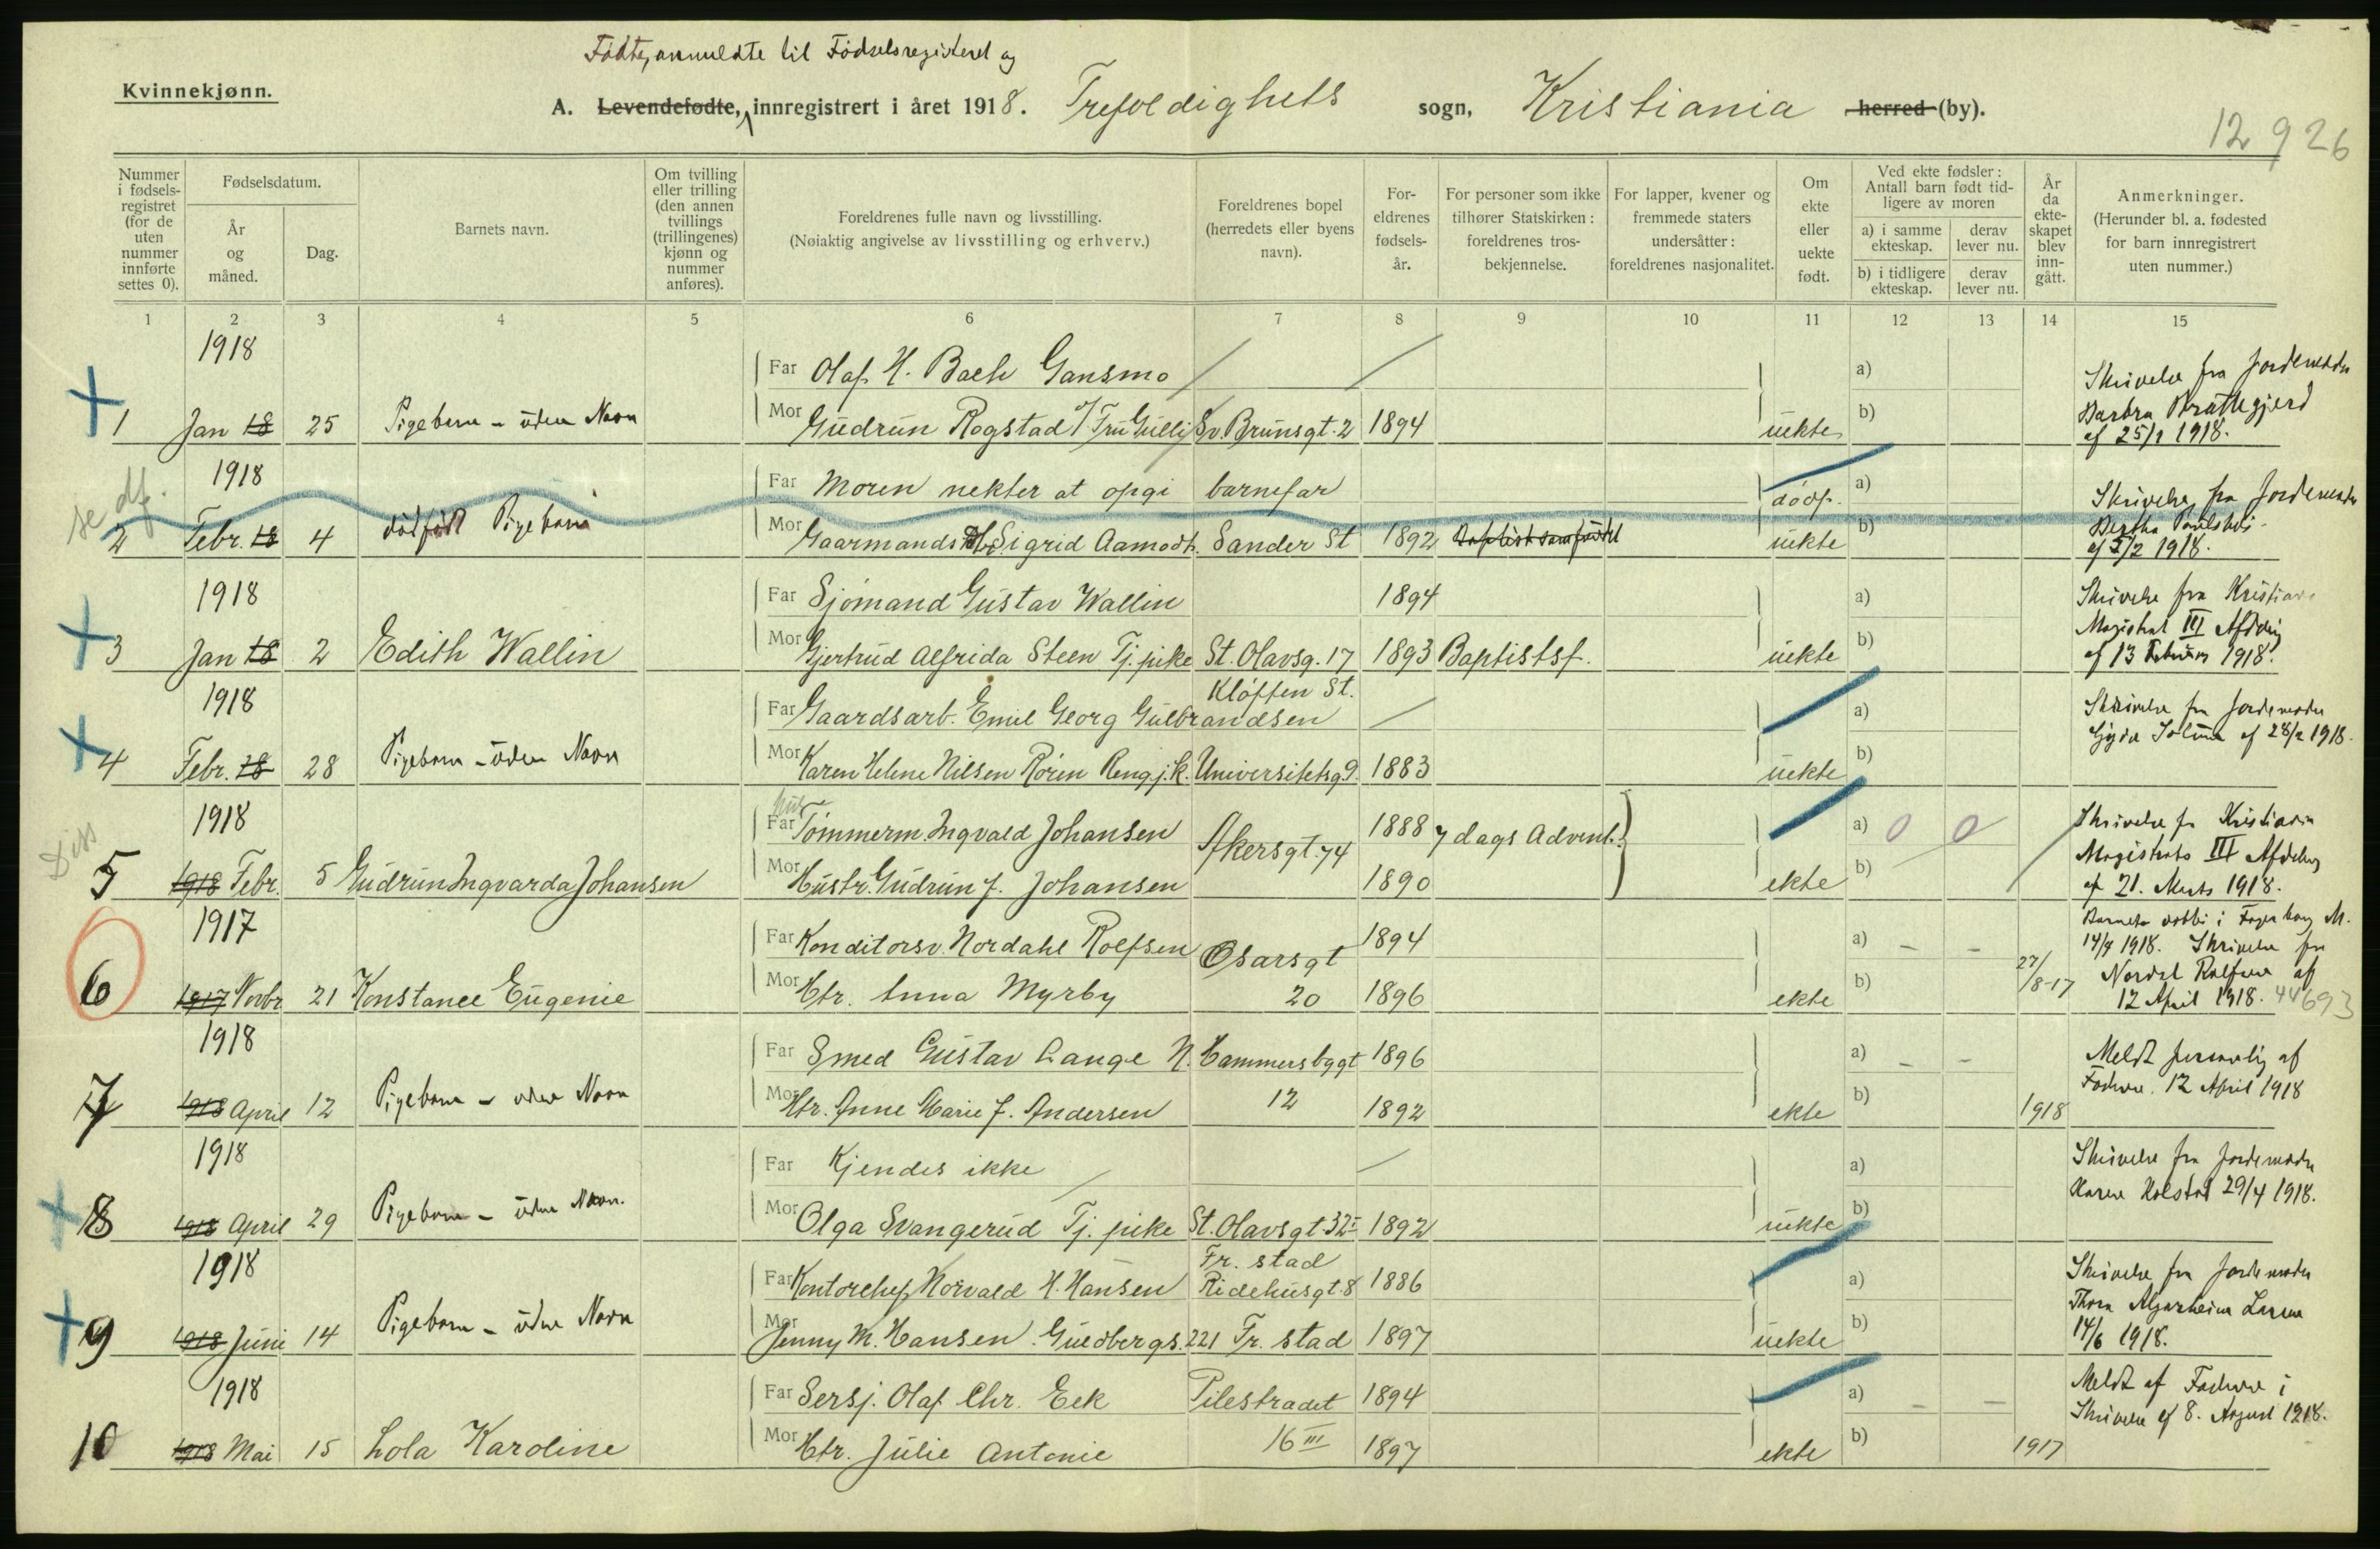 Fødte, anmeldte til Fødselsregisteret og
Kvinnekjønn.
A. Levendefødte, innregistrert i året 1918. Trefoldighets sogn, Kristiania herred (by).
12 926
Nummer i fødselsregistret (for de uten nummer innførte settes 0).
Fødselsdatum.
År og måned.
Dag.
Barnets navn.
Om tvilling eller trilling (den annen tvillings (trillingenes) kjønn og nummer anføres).
Foreldrenes fulle navn og livsstilling.
(Nøiaktig angivelse av livsstilling og erhverv.)
Foreldrenes bopel (herredets eller byens navn).
Foreldrenes fødselsår.
For personer som ikke tilhører Statskirken: foreldrenes trosbekjennelse.
For lapper, kvener og fremmede staters undersåtter: foreldrenes nasjonalitet.
Om ekte eller uekte født.
Ved ekte fødsler: Antall barn født tidligere av moren
a) i samme ekteskap.
derav lever nu.
b) i tidligere ekteskap.
derav lever nu.
År da ekteskapet blev inngått.
Anmerkninger.
(Herunder bl. a. fødested for barn innregistrert uten nummer.)
1 2 3 4 5 6 7 8 9 10 11 12 13 14 15
1918
Far Olaf H. Bach Gansmo
a)
Skrivelse fra Jordemoder
1 Jan 18 25 Pigebarn - uden Navn
Mor Gudrun Rogstad Fru Gulli Sv. Brunsgt. 2 1894 uekte b)
af 25/1 1918.
se df.
1918
Far Moren nekter at opgi barnefar
dödf. a)
Skrivelse fra Jordemoder
2 Febr. 18 4 dödfödt Pigebarn
Mor Gaarmands Sigrid Aamodt. Sander St 1892 Baptistsamfundet uekte b)
af 5/2 1918.
1918
Far Sjömand Gustav Wallin 1894
a)
Skrivelse fra Kristiania
Magistrat III Afdeling
3 Jan 18 2 Edith Wallin
Mor Gjertrud Alfrida Steen Tj. pike St. Olavsg. 17 1893 Baptistsf. uekte b)
af 13 Februar 1918.
1918
Kløften St.
Far Gaardsarb. Emil Georg Gulbrandsen
a)
Skrivelse fra Jordemoder
af 28/2 1918.
4 Febr. 18 28 Pigebarn - uden Navn
Mor Karen Helene Nilsen Rören Rengj.k. Universitetsg. 9 1883 uekte b)
1918
Far Tömmerm. Ingvald Johansen Akersgt. 74 1888 7 dags Advent.
a) 0 0
Skrivelse fr Kristiania
Magistrats III Afdeling
5 1918 Febr. 5 Gudrun Ingvarda Johansen
Mor Hustr. Gudrun f. Johansen 1890 ekte b)
af 21. Marts 1918.
1917
Far Konditorsv. Nordahl Rolfsen Osarsgt 1894
a) - -
14/4 1918. Skrivelse fra
6 1917 Novbr 21 Konstance Eugenie
Mor Htr. Anna Myrby 20 1896 ekte b) 27/8-17
Nordal Rolfsen af
12 April 1918. 44693
1918
Far Smed Gustav Lange N. Hammersbygt 1896
a) - -
Meldt personlig af
7 1918 April 12 Pigebarn - uden Navn
Mor Htr. Anne Marie f. Andersen 12 1892 ekte b) 1918
Faderen. 12 April 1918
1918
Far Kjendes ikke
a)
Skrivelse fra Jordemoder
8 1918 April 29 Pigebarn - uden Navn.
Mor Olga Svangerud Tj. pike St. Olavsgt. 32 I 1892 uekte b)
Karen Kolstad 29/4 1918.
1918
Fr. stad
Far Kontorchef Norvald H. Hansen Ridehusgt. 8 1886
a)
Skrivelse fra Jordemoder
9 1918 Juni 14 Pigebarn - uden Navn
Mor Jenny M. Hansen. Guldbergs. 221 Fr. stad 1897 uekte b)
14/6 1918.
1918
Far Sersj. Olaf Chr. Eek Pilestradet 1894
a) - -
Meldt af Faderen i
Skrivelse af 8. August 1918.
10 1918 Mai 15 Lola Karoline
Mor Htr. Julie Antonie 16 III 1897 ekte b) 1917